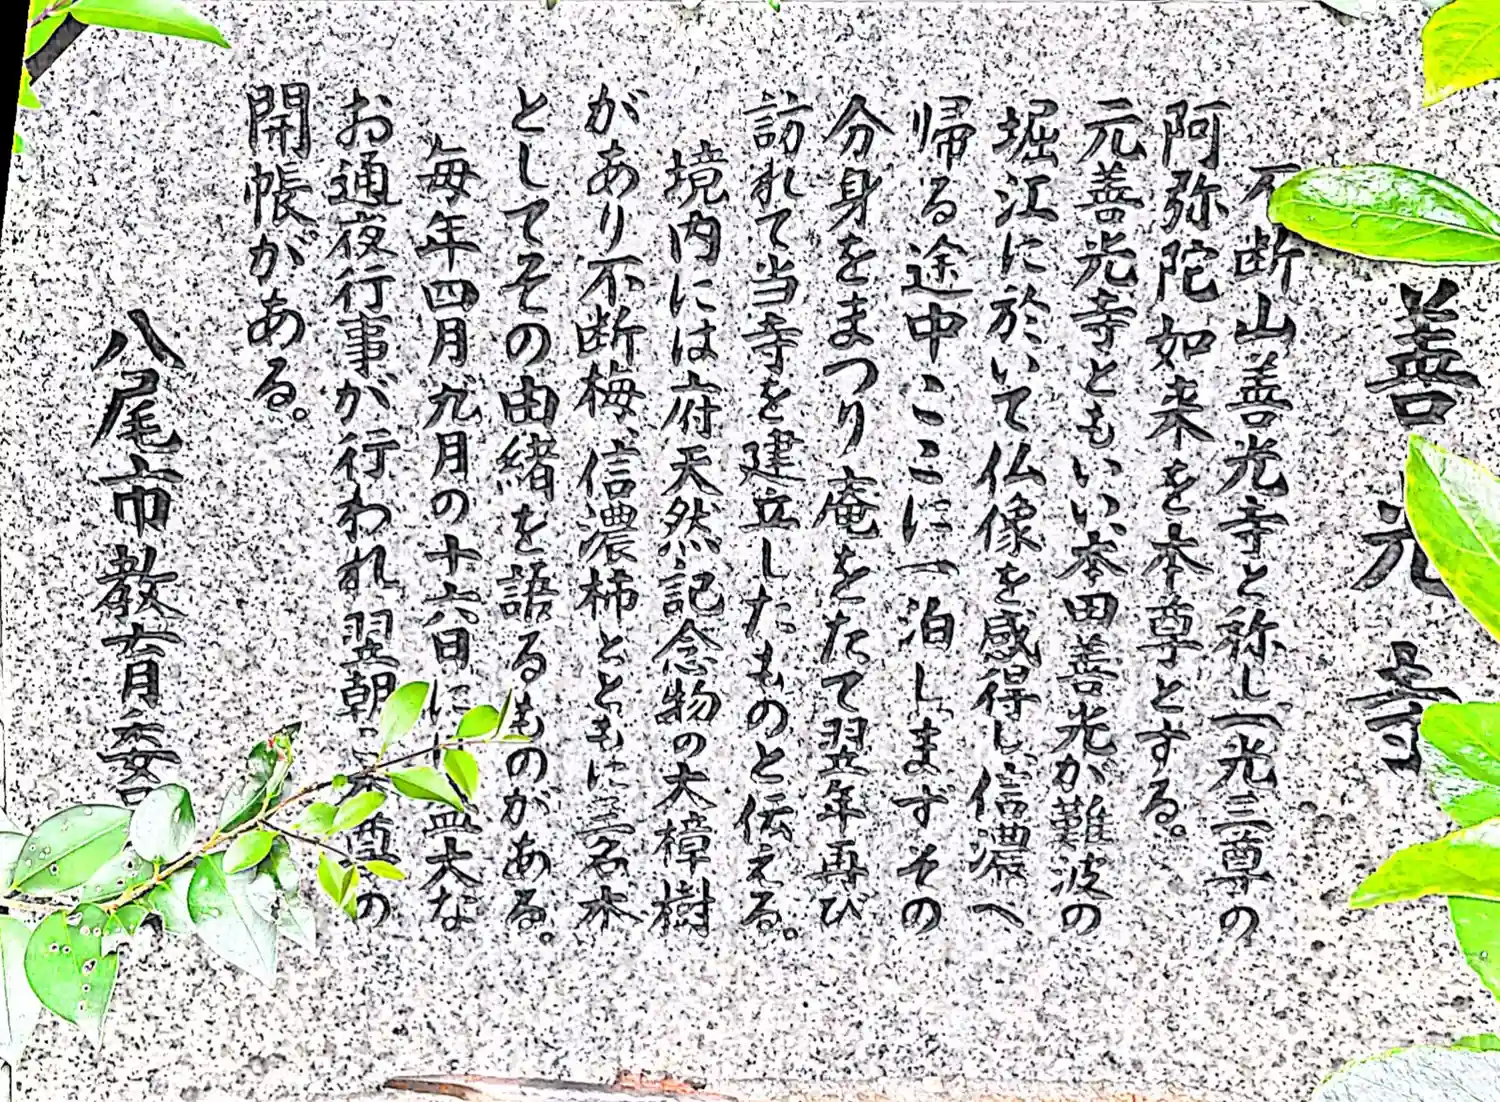 善光寺
不断山善光寺と称し一光三尊の
阿弥陀如来を本尊とする。
元善光寺ともいい、本田善光が難波の
堀江に於いて仏像を感得し、信濃へ
帰る途中ここに一泊しまずその
分身をまつり庵をたて翌年再び
訪れて当寺を建立したものと伝える。
境内には府天然記念物の大樟樹
があり不断梅、信濃柿とともに三名木
としてその由緒を語るものがある。
毎年四月九月の十六日に盛大な
お通夜行事が行われ翌朝本尊の
開帳がある。
八尾市教育委